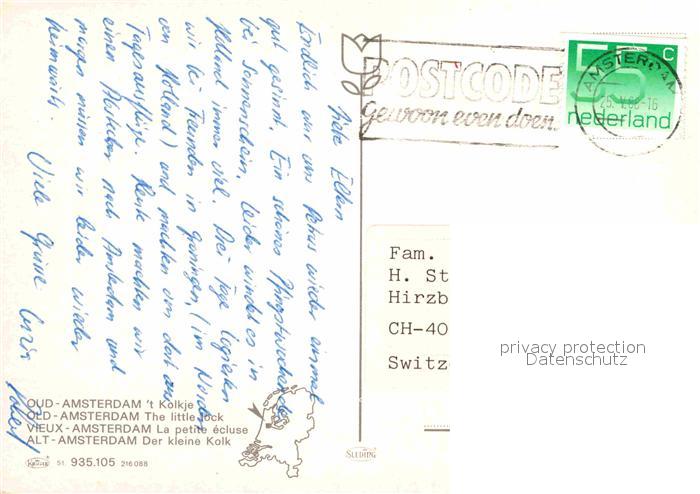 Liebe Eltern
Endlich hat uns Petrus wieder einmal
gut gesinnt. Ein schönes Pfingstwochenende
bei Sonnenschein, leider windet es in
Holland immer viel. Drei Tage logierten
wir bei Freunden in Groningen (im Norden
von Holland) und machten von dort aus
Tagesausflüge. Heute machten wir
einen Abstecher nach Amsterdam und
morgen müssen wir leider wieder
heimwärts.
Viele Grüsse
POSTCODE
Gewoon even doen.
AMSTERDAM
55 c
nederland
Fam.
H. St
Hirzb
CH-40
Switz
privacy protection
Datenschutz
OUD-AMSTERDAM 't Kolkje
OLD-AMSTERDAM The little lock
VIEUX-AMSTERDAM La petite écluse
ALT-AMSTERDAM Der kleine Kolk
51. 935.105 216088
SLEDING